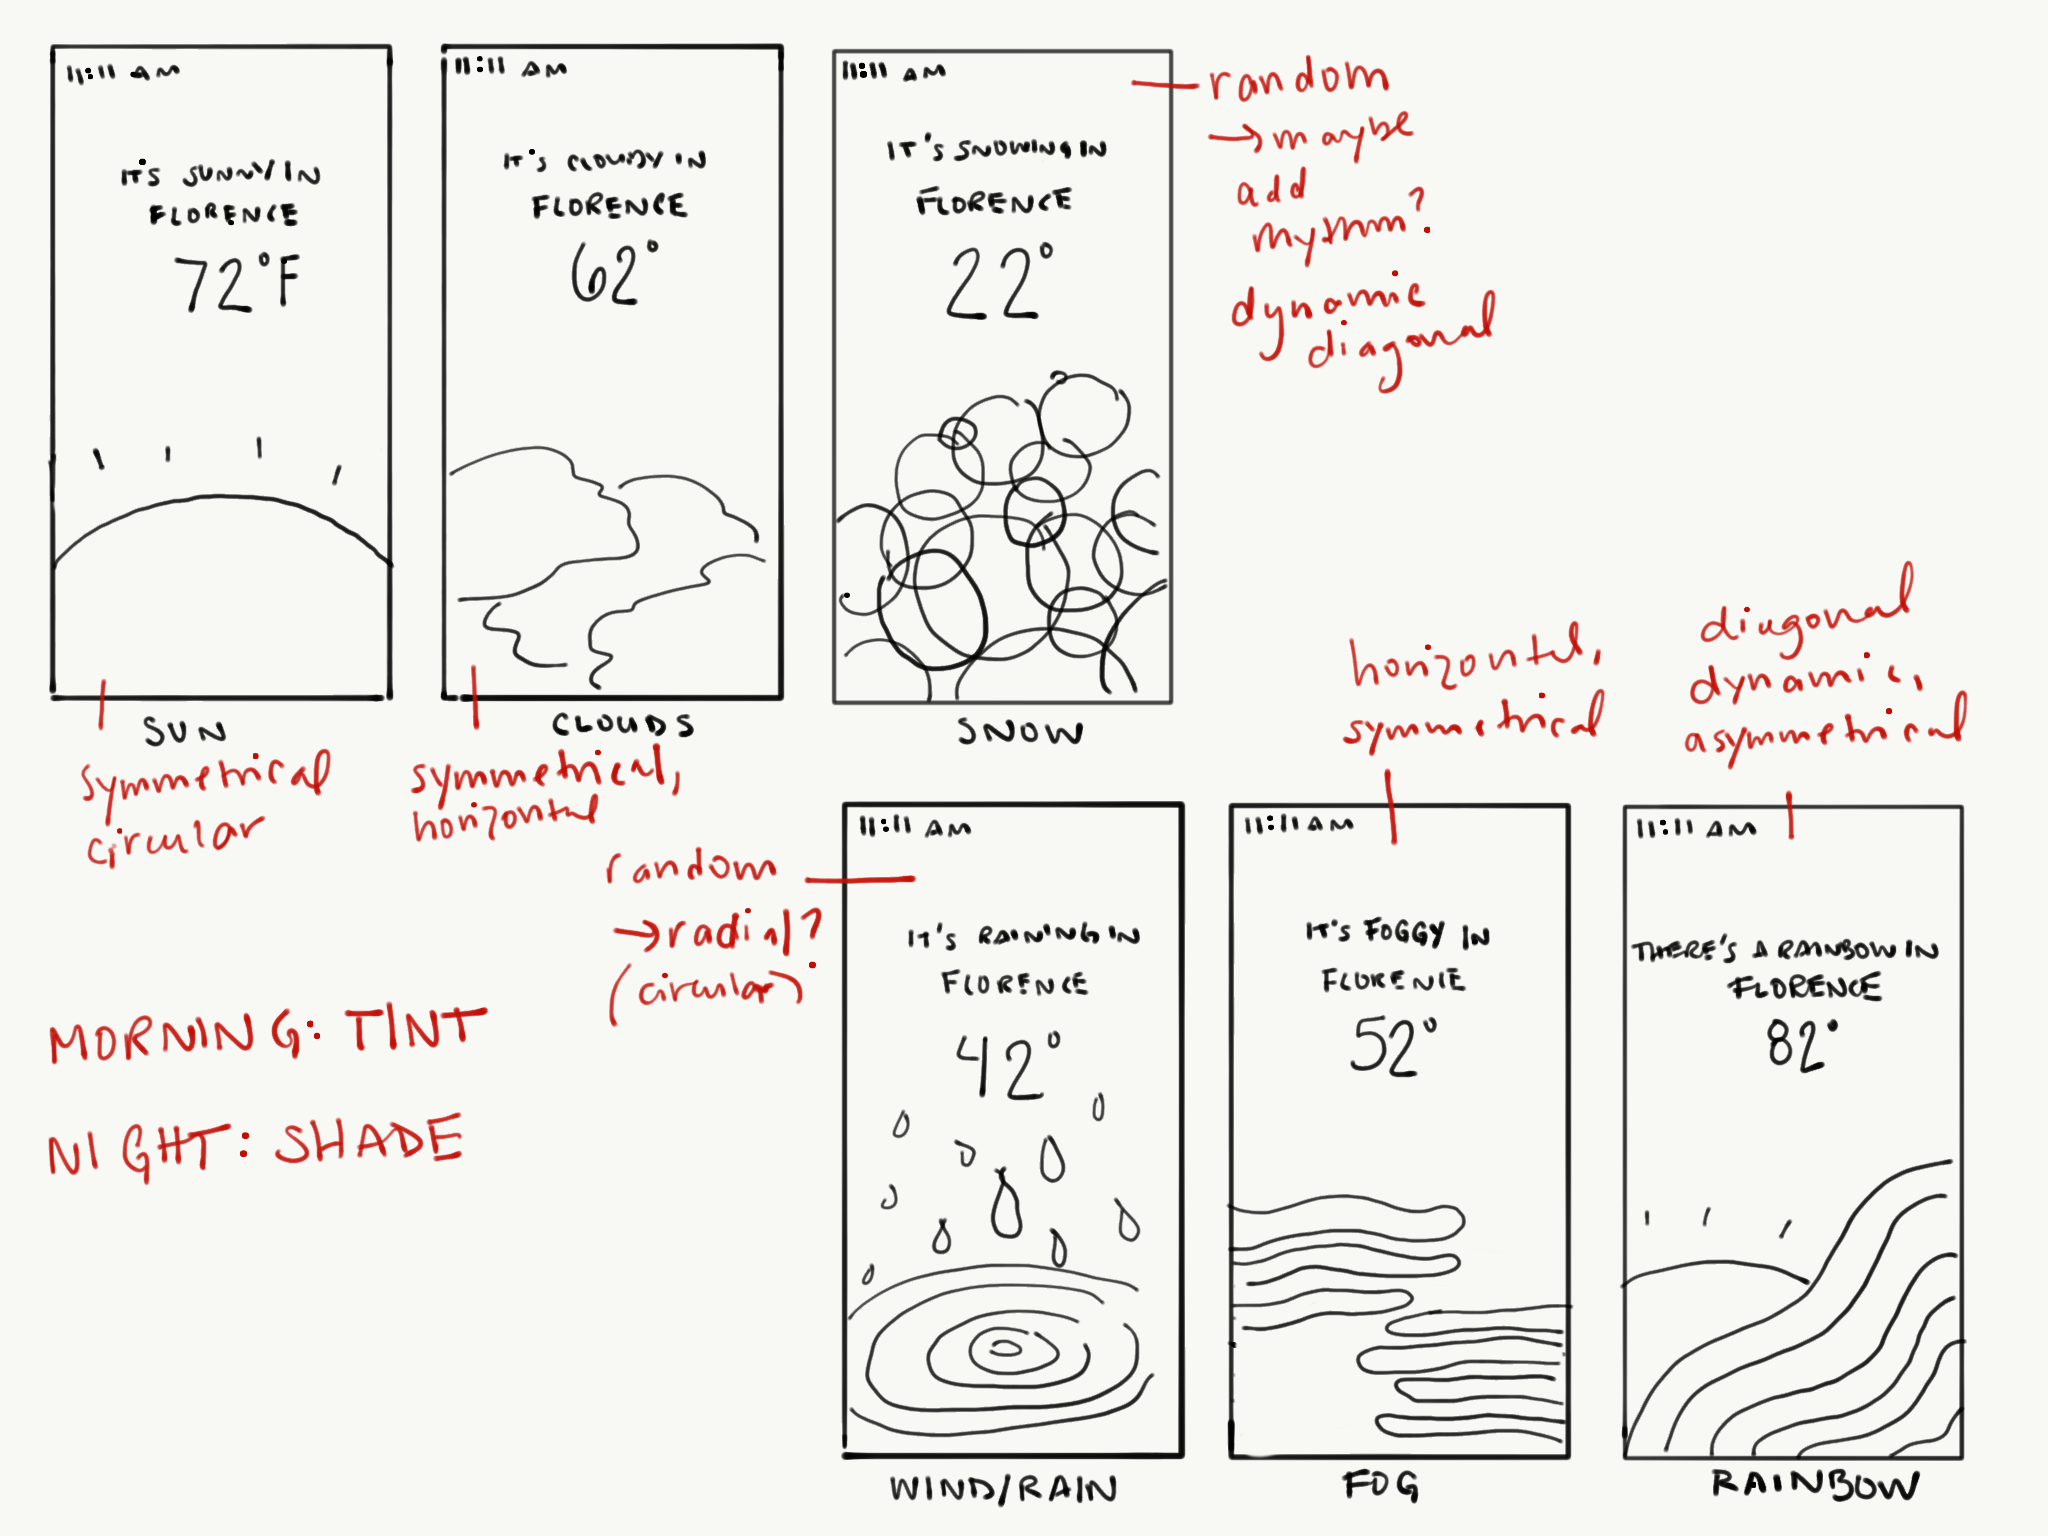 11:11 AM
IT'S SUNNY IN
FLORENCE
72°F
SUN
symmetrical
circular
11:11 AM
IT'S CLOUDY IN
FLORENCE
62°
CLOUDS
symmetrical,
horizontal
11:11 AM
IT'S SNOWING IN
FLORENCE
22°
SNOW
random
→ maybe
add
rhythm?
dynamic
diagonal
MORNING: TINT
NIGHT: SHADE
random
→ radial?
(circular)
11:11 AM
IT'S RAINING IN
FLORENCE
42°
WIND/RAIN
horizontal,
symmetrical
11:11 AM
IT'S FOGGY IN
FLORENCE
52°
FOG
diagonal
dynamic,
asymmetrical
11:11 AM
THERE'S A RAINBOW IN
FLORENCE
82°
RAINBOW